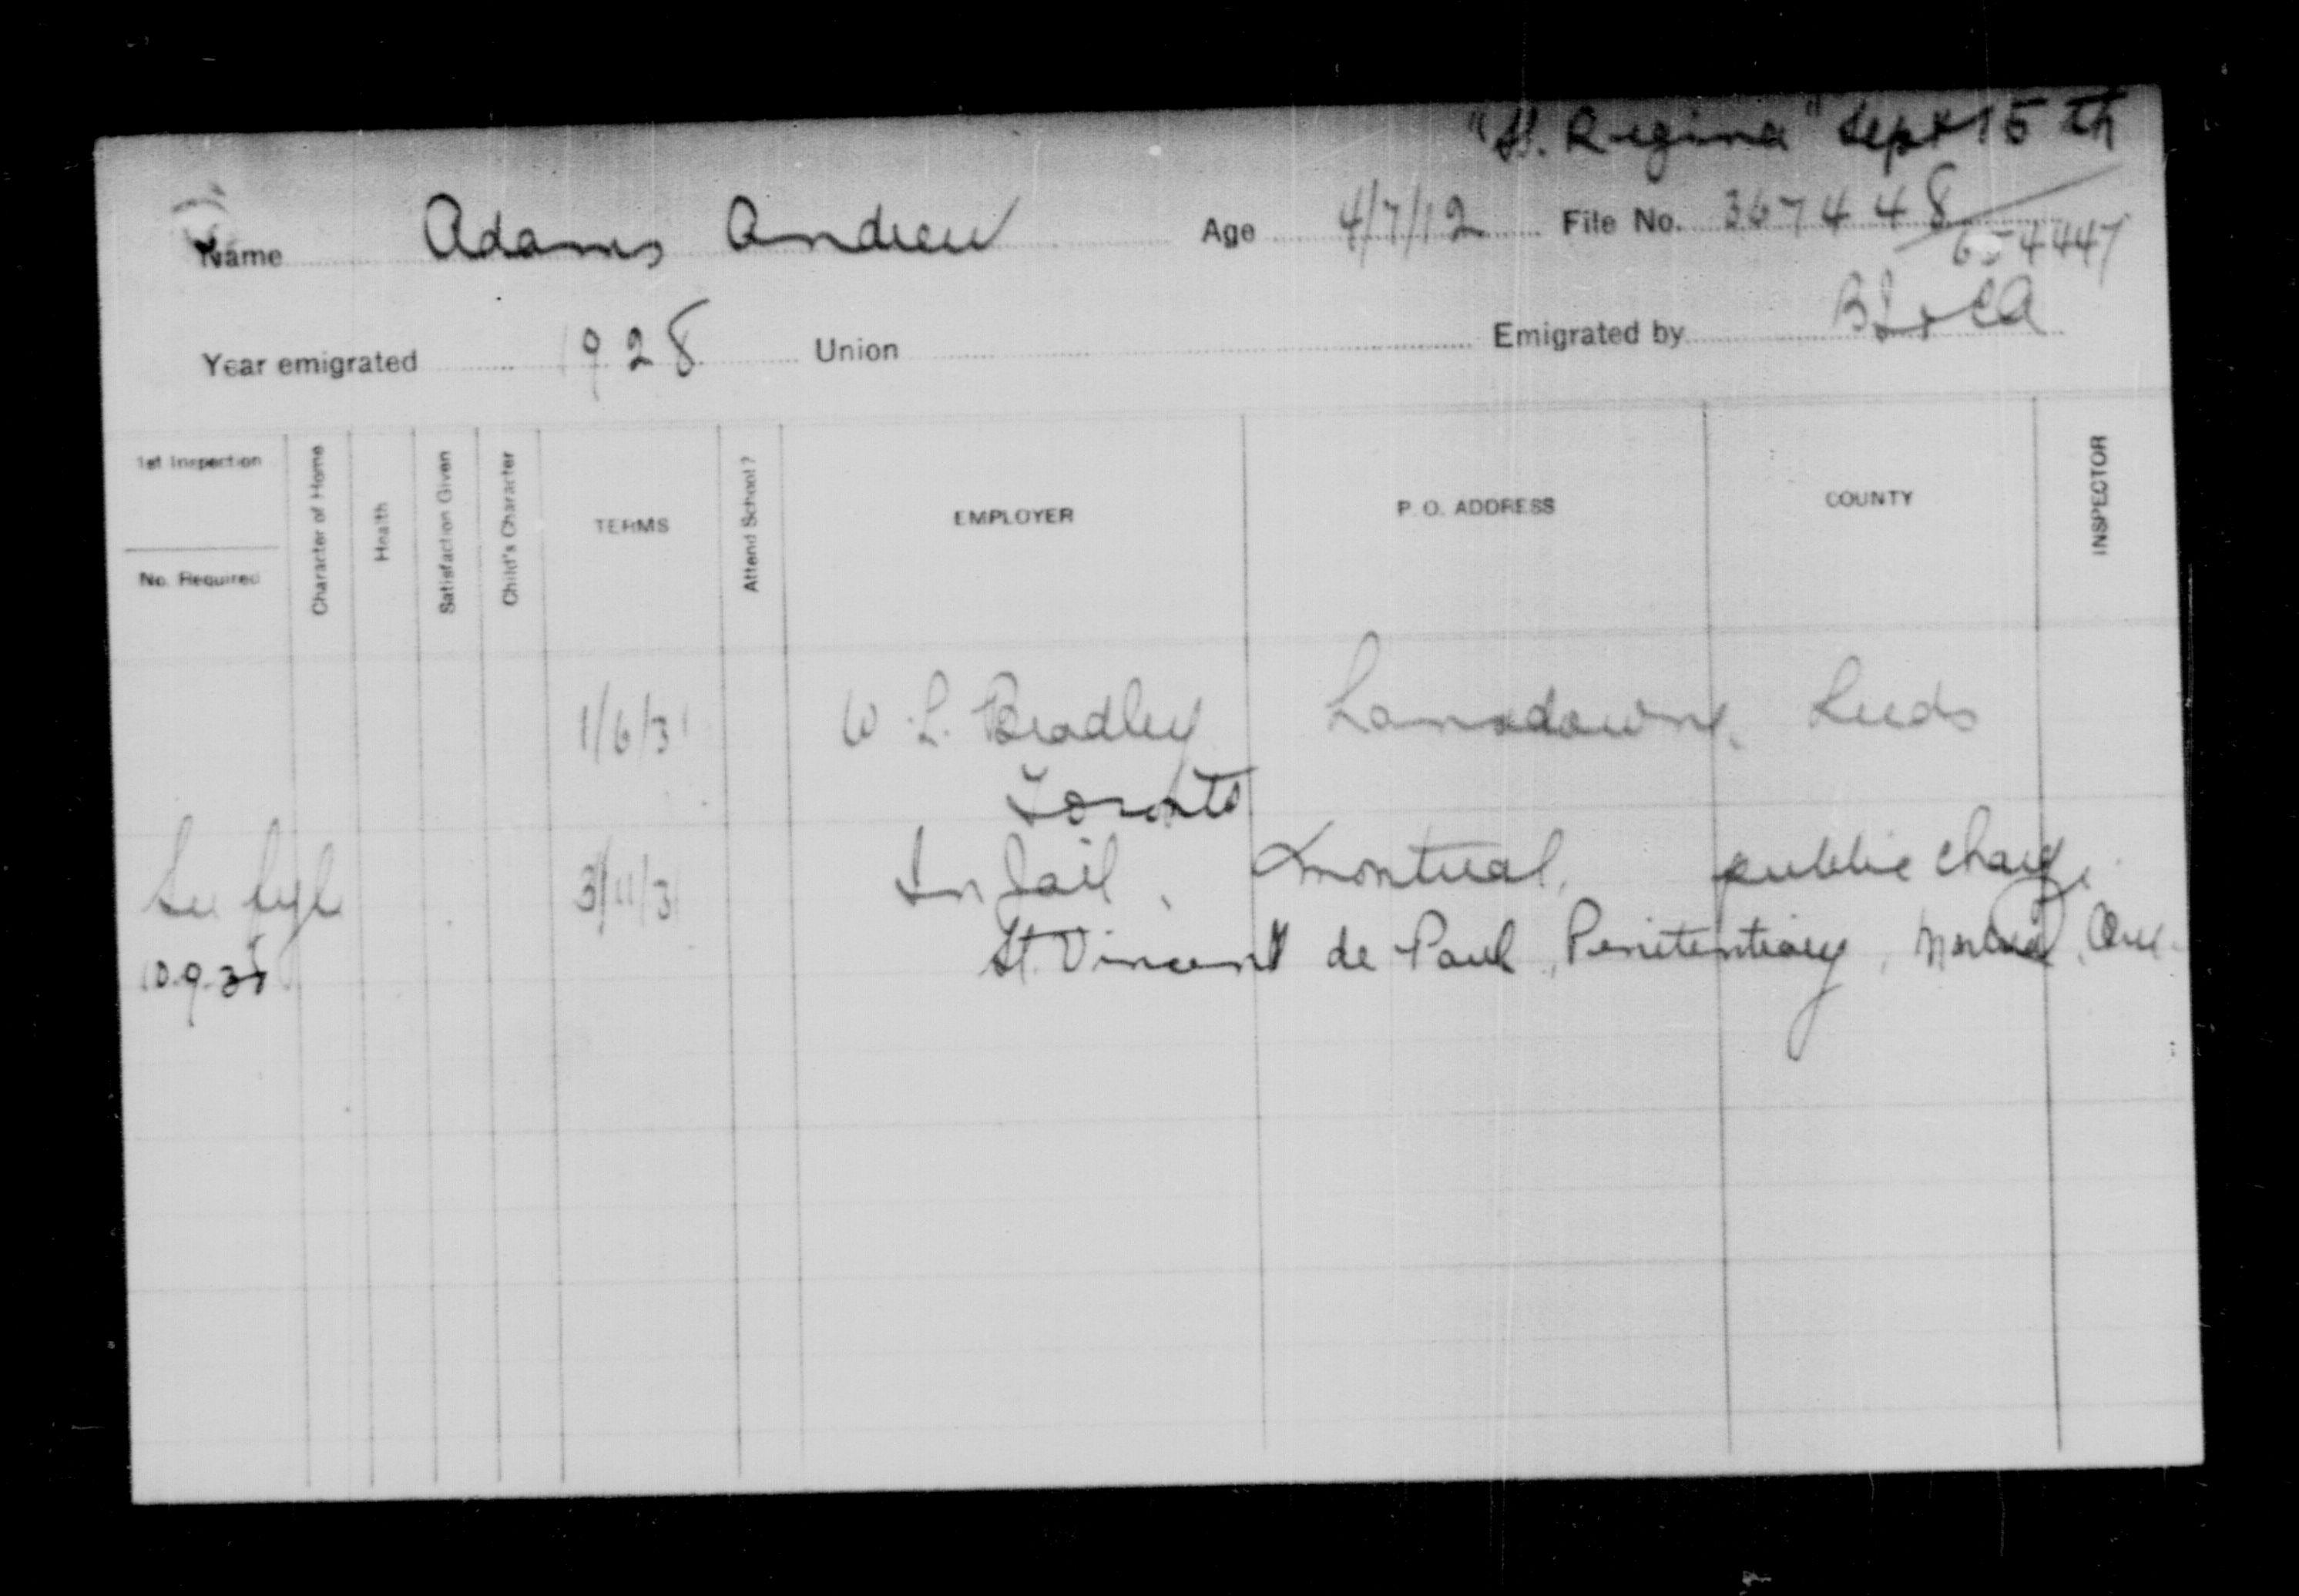 "St. Regina" Sept 15th
Name Adams Andrew Age 4/7/12 File No. 367448
654447
Year emigrated 1928 Union Emigrated by
1st Inspection
No. Required
Character of Home
Health
Satisfaction Given
Child's Character
TERMS
Attend School?
EMPLOYER
P. O. ADDRESS
COUNTY
INSPECTOR
1/6/31 W. L. Bradley Lansdowne. Leeds
Toronto
See fyl 3/11/31 In Jail, Montreal, public charge
10.9.35 St. Vincent de Paul, Penitentiary, Montreal, Que.